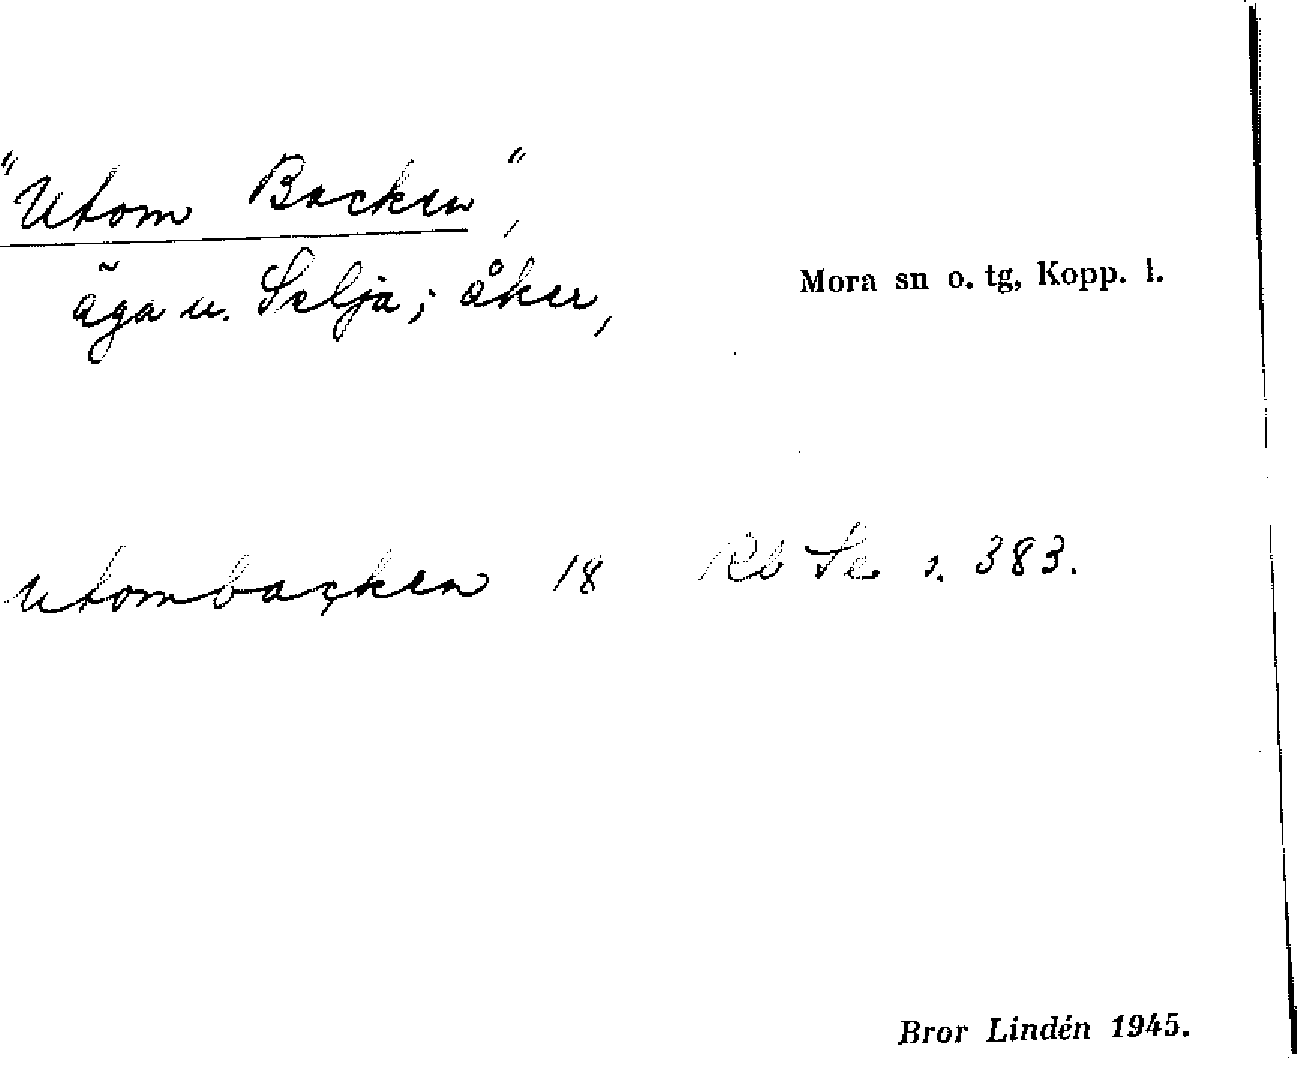 "Utom Backen",
äga u. Selja; åker,
Mora sn o. tg, Kopp. l.
utombacken 18 Rb Sk s. 383.
Bror Lindén 1945.